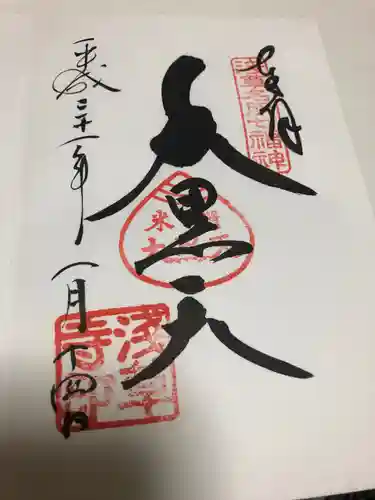 奉拝
浅草名所七福神
大黒天
平成三十一年一月十四日
浅草寺印